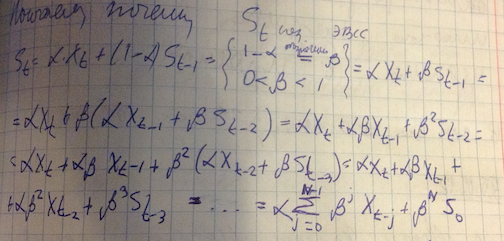 Поясняем почему S_t наз. ЭВСС
S_t = αX_t + (1-α)S_{t-1} = { 1-α обозначим = β, 0<β<1 } = αX_t + βS_{t-1} =
= αX_t + β(αX_{t-1} + βS_{t-2}) = αX_t + αβX_{t-1} + β²S_{t-2} =
= αX_t + αβ X_{t-1} + β²(αX_{t-2} + βS_{t-3}) = αX_t + αβX_{t-1} +
+ αβ²X_{t-2} + β³S_{t-3} = ... = α∑_{j=0}^{N-1} β^j X_{t-j} + β^N S_0